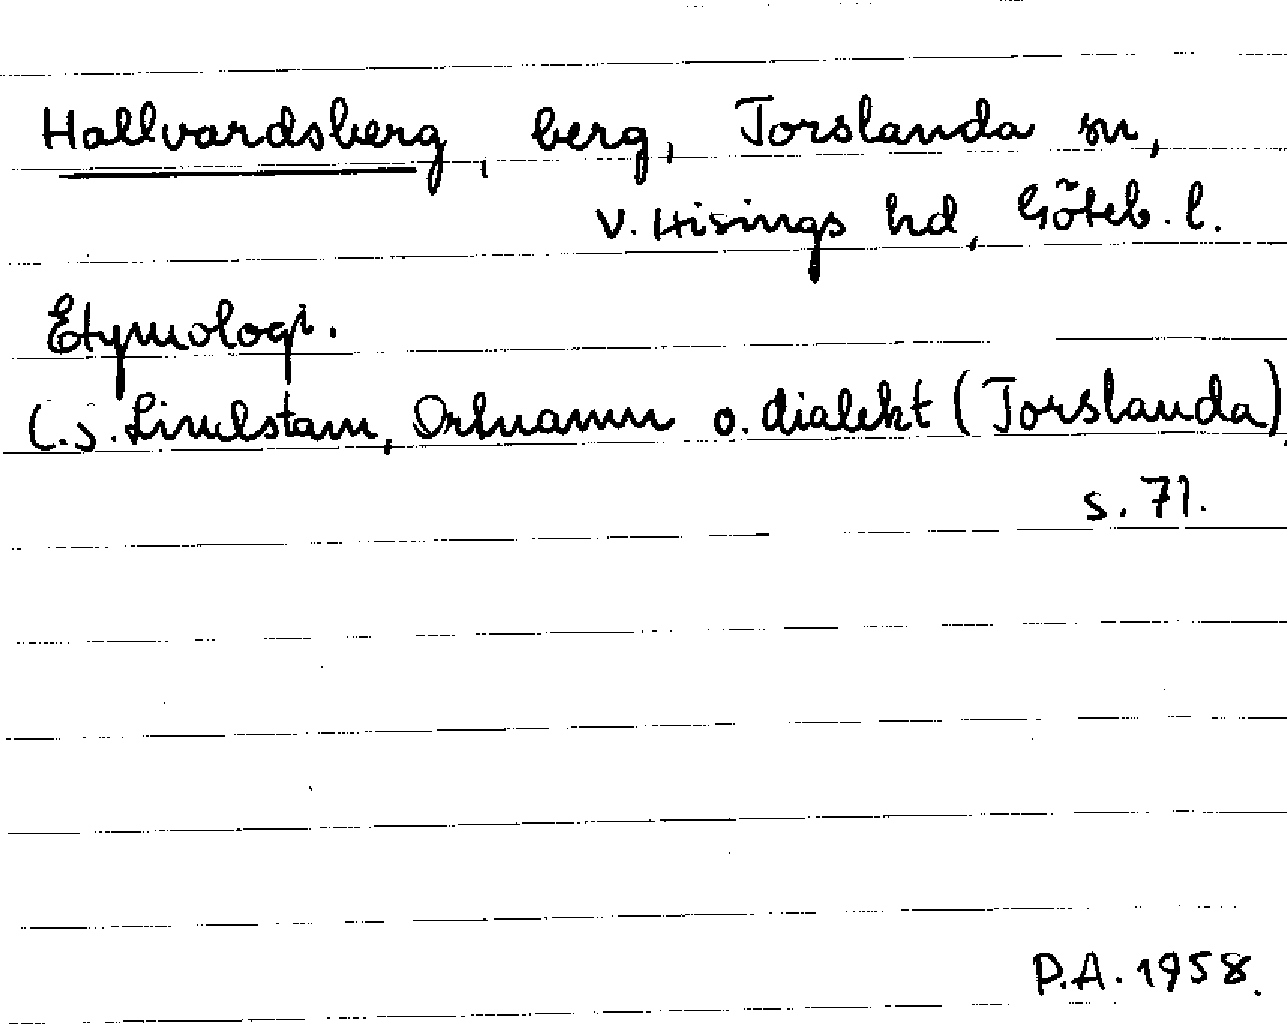 Hallvardsberg, berg, Torslanda sn,
V. Hisings hd, Göteb. l.
Etymologi.
C.S. Lindstam, Ortnamn o. dialekt (Torslanda),
s. 71.
P.A. 1958.